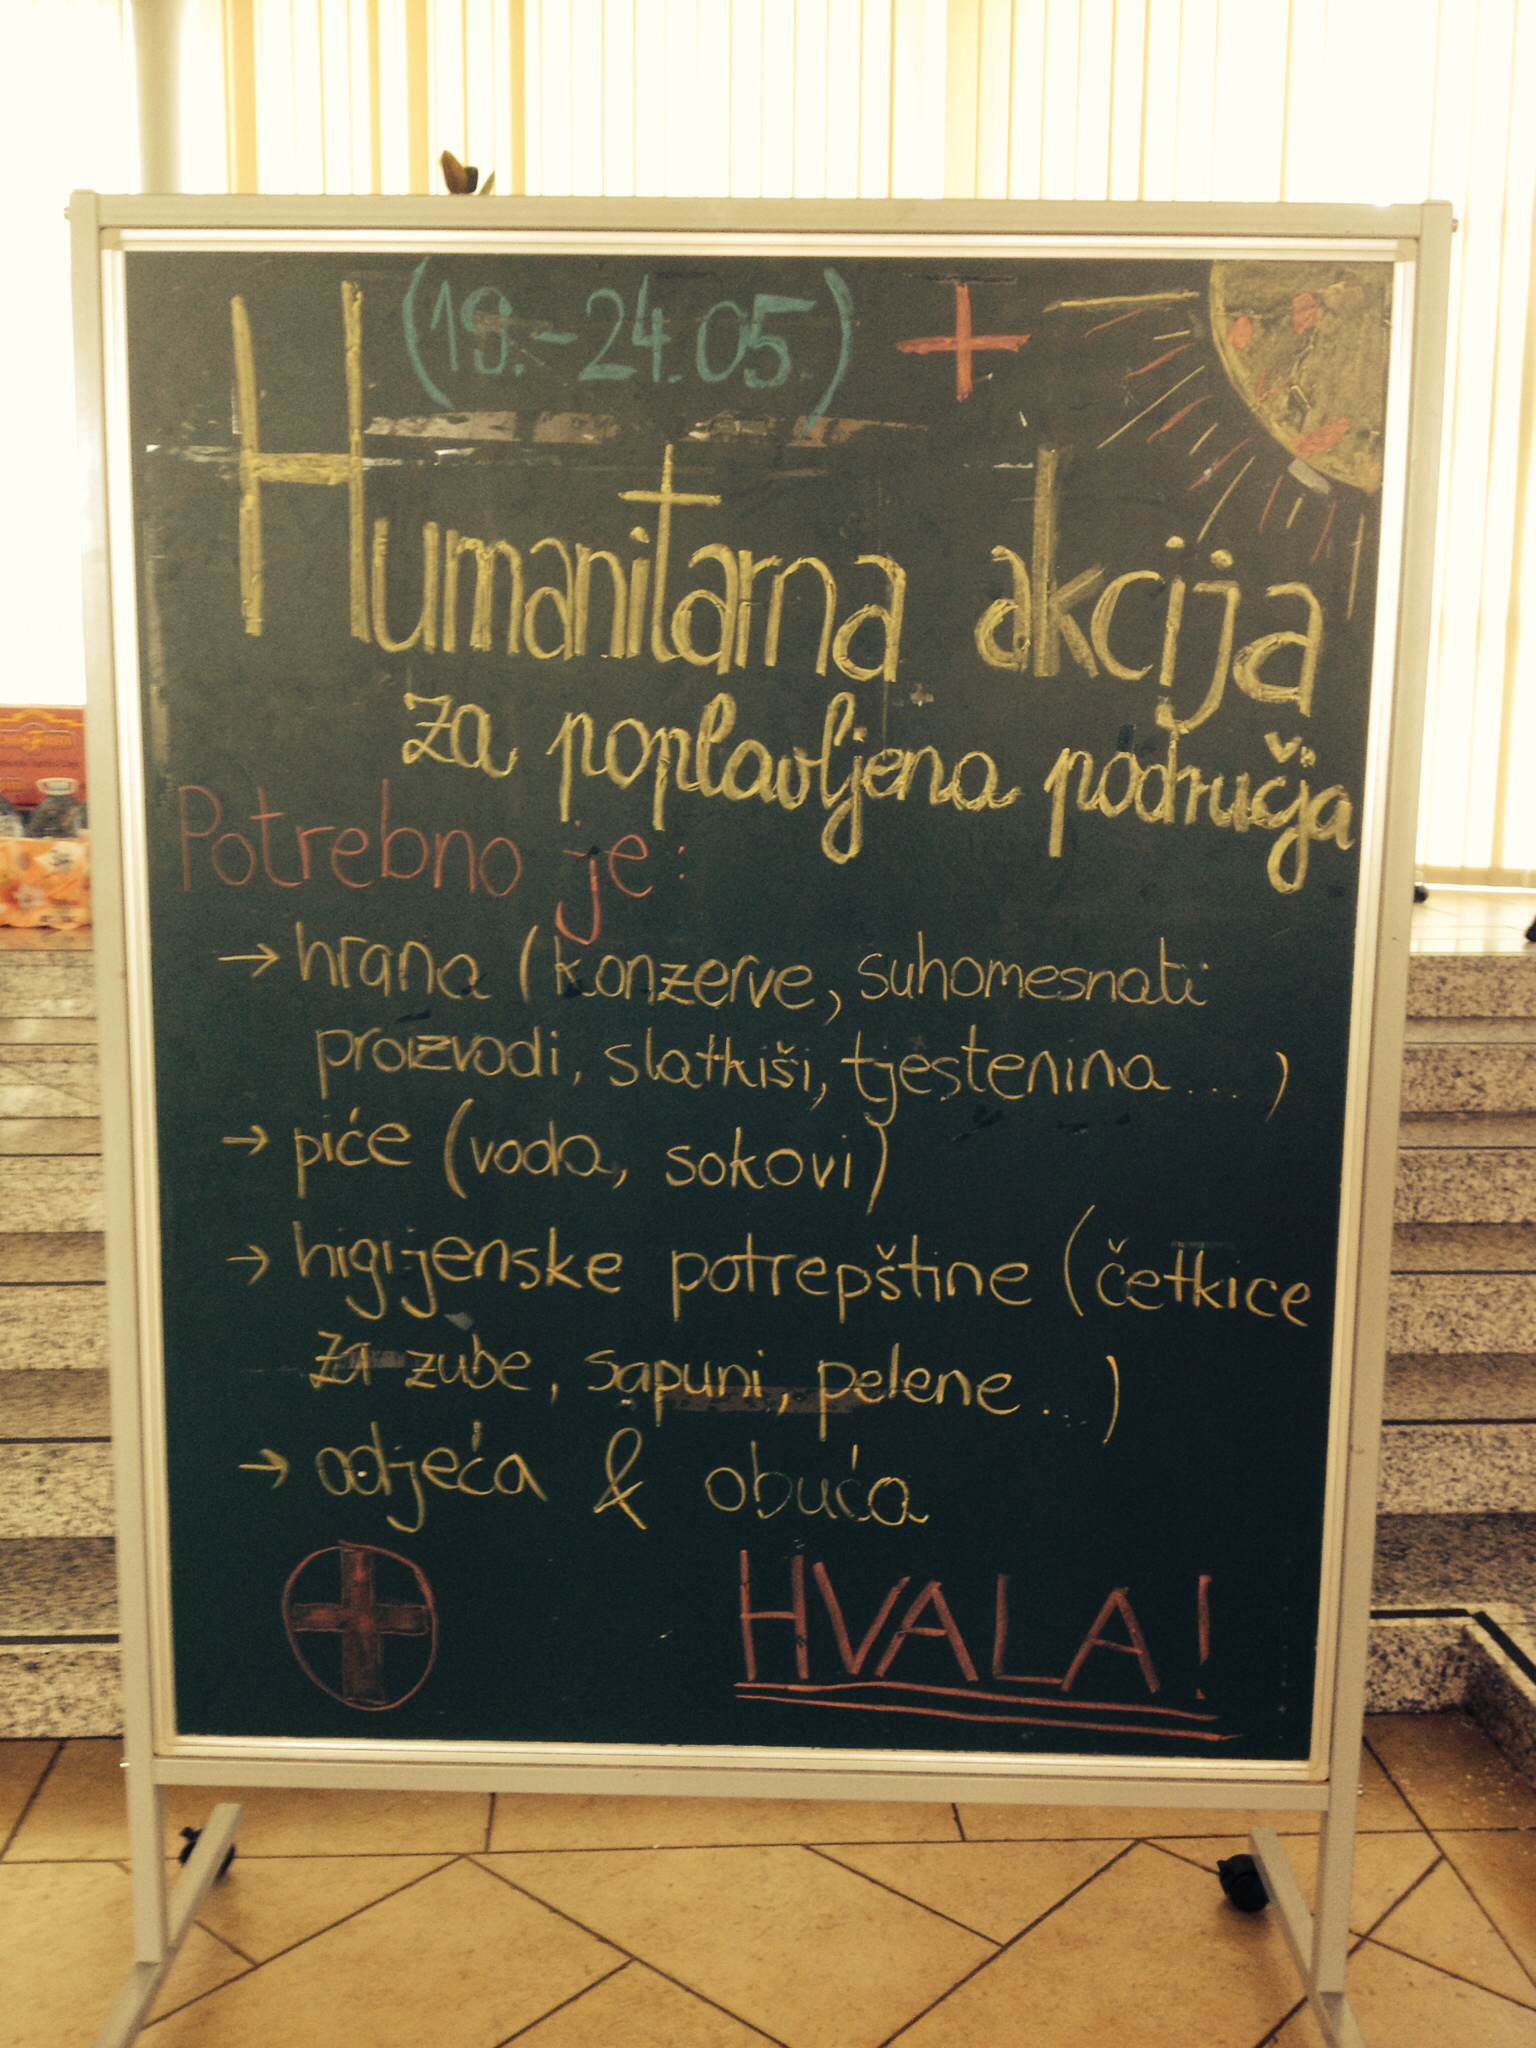 (19.-24.05.)
Humanitarna akcija
za poplavljena područja
Potrebno je:
→ hrana (konzerve, suhomesnati
proizvodi, slatkiši, tjestenina ... )
→ piće (voda, sokovi)
→ higijenske potrepštine (četkice
za zube, sapuni, pelene ... )
→ odjeća & obuća
HVALA!